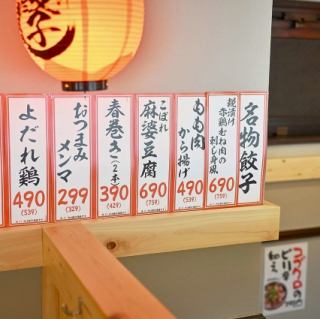 餃子
名物餃子
親漬け
赤鶏むね肉の
刺し身風
690
(759)
もも肉
から揚げ
490
(539)
こぼれ
麻婆豆腐
690
(759)
春巻き(2本)
390
(429)
おつまみ
メンマ
299
(329)
よだれ鶏
490
(539)
ピリ辛
和え